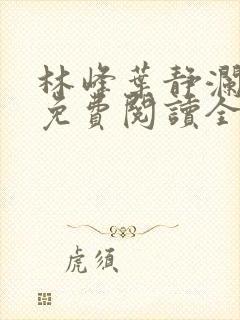 林峰葉靜瀾
免費閱讀全
虎須